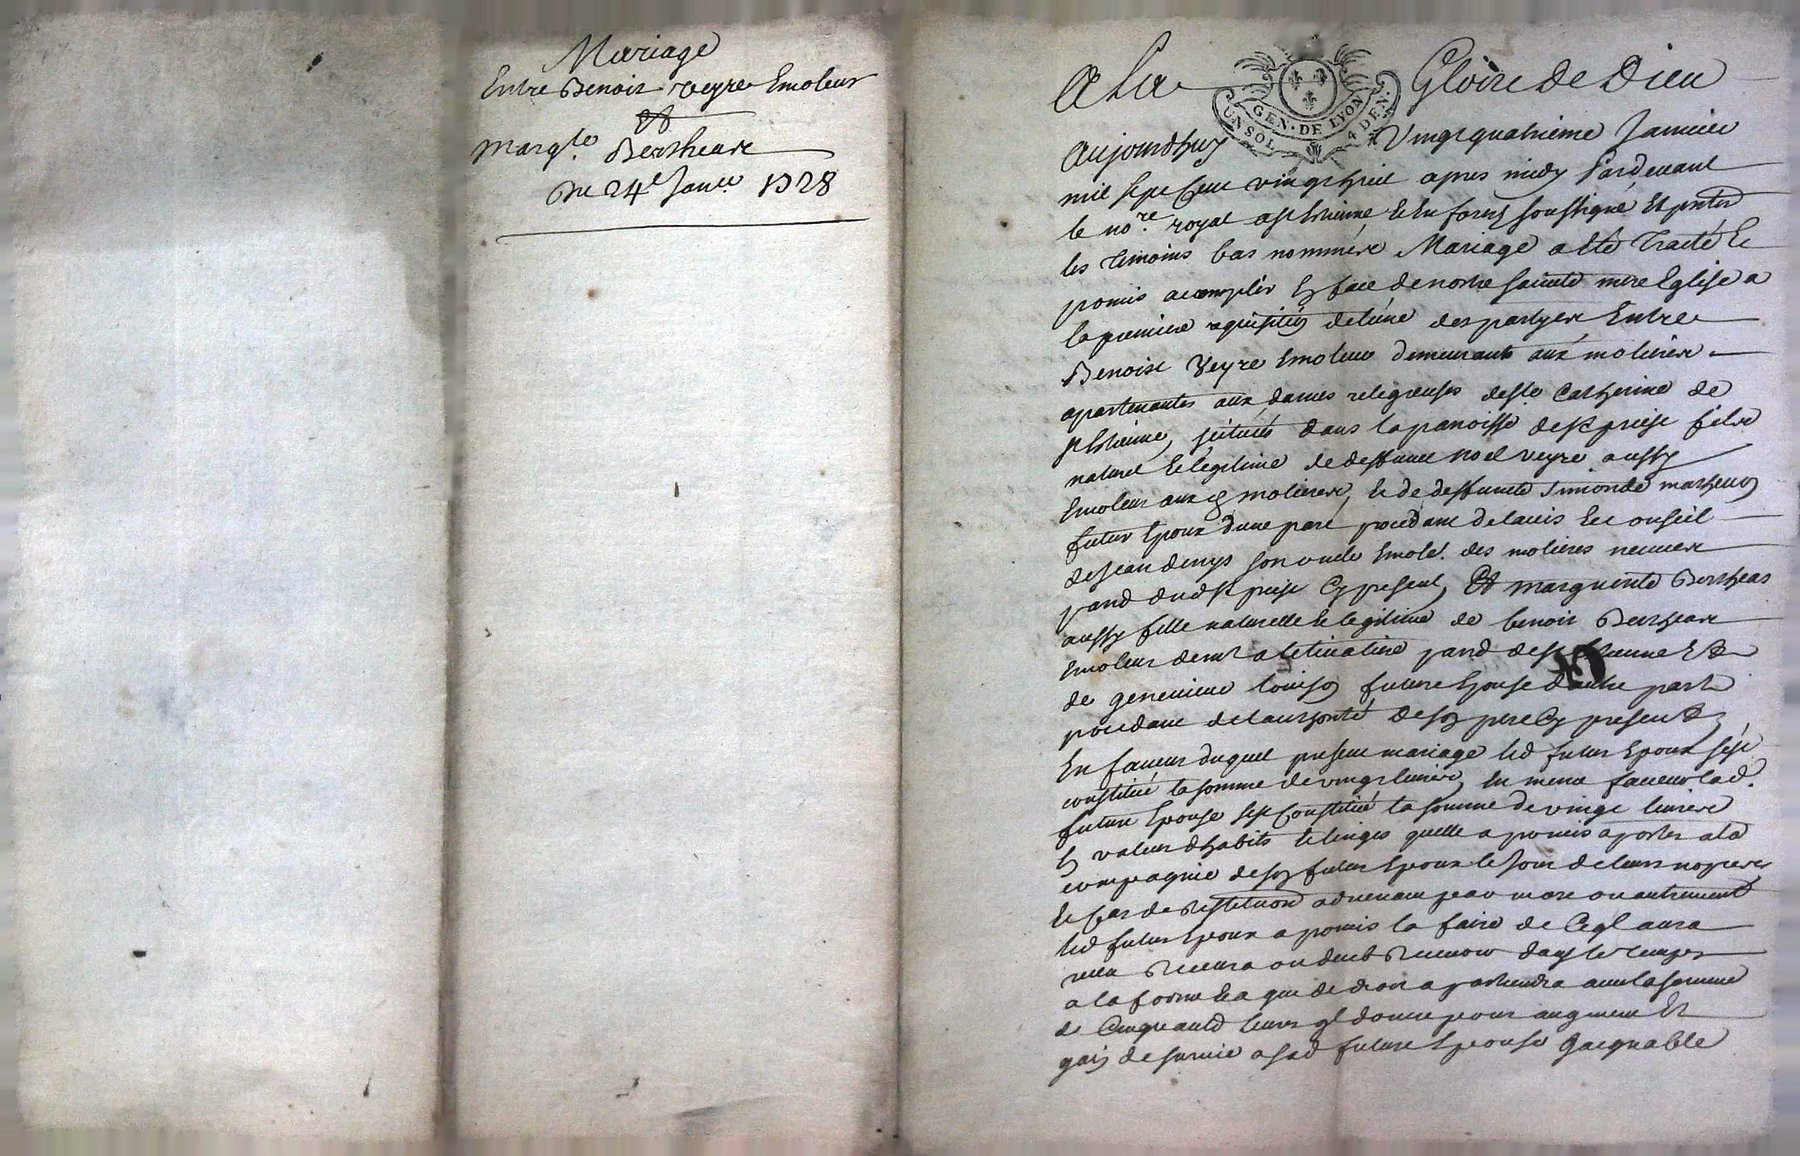 Mariage
Entre Benoit Veyre Emoleur
Et
Marg.te Bertheax
Du 24e Janer 1728
A la Gloire de Dieu
GEN. DE LYON
UN SOL 4 DEN.
Aujourdhuy Vingt quatrieme Janvier
mil sept Cent vingt huit apres midy Pardevant
le no.re royal a St Etienne en forez soussigné Et presents
les temoins bas nommés Mariage a été Traité Et
promis acomplir En face de nostre sainte mere Eglise a
la premiere requisition de lune des partyes Entre
Benoist Veyre Emoleur demeurant aux molieres
apartenantes aux dames religieuses de Ste Catherine de
St Etienne, scituées dans la paroisse de St priest fils
naturel Et legitime de deffunct noel veyre aussy
Emoleur aux molieres, Et de deffuncte Simonde matheuon
futur Epoux dune part procedant de lavis Et conseil
de Jean denys son oncle Emoleur des molieres neuves
parr. dud St priest Cy present, Et marguerite Bertheas
aussy fille naturelle Et legitime de benoit Bertheax
Emoleur demt a parr. de St Etienne Et
de genevieve Louison future Epouse dautre part
procedant de lauthorité de son pere Cy present
En faveur duquel present mariage led futur Epoux sest
constitué la somme de vingt livres, En meme faveur lad.
future Epouse sest Constitué la somme de vingt livres
En valeur dhabits Et linges quelle a promis aporter a la
compagnie de son futur Epoux le Jour de leurs nopces
Et Cas de restitution advenant par mort ou autrement
led futur Epoux a promis la faire de Ce ql aura
receu recevra ou deub recevoir dans les temps
a la forme Et a qui de droit apartiendra avec la somme
de livres ql donne pour augment Et
gain de survie a sad future Epouse Gaignable